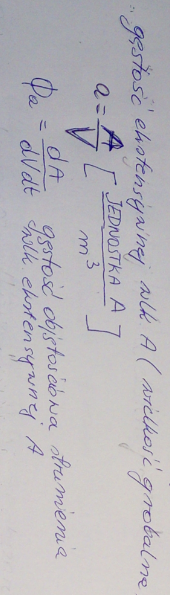 gęstość ekstensywnej wlk A (wielkość globalna
a = A/V [JEDNOSTKA A / m³]
ϕa = dA/dVdt gęstość objętościowa strumienia
wlk. ekstensywnej A